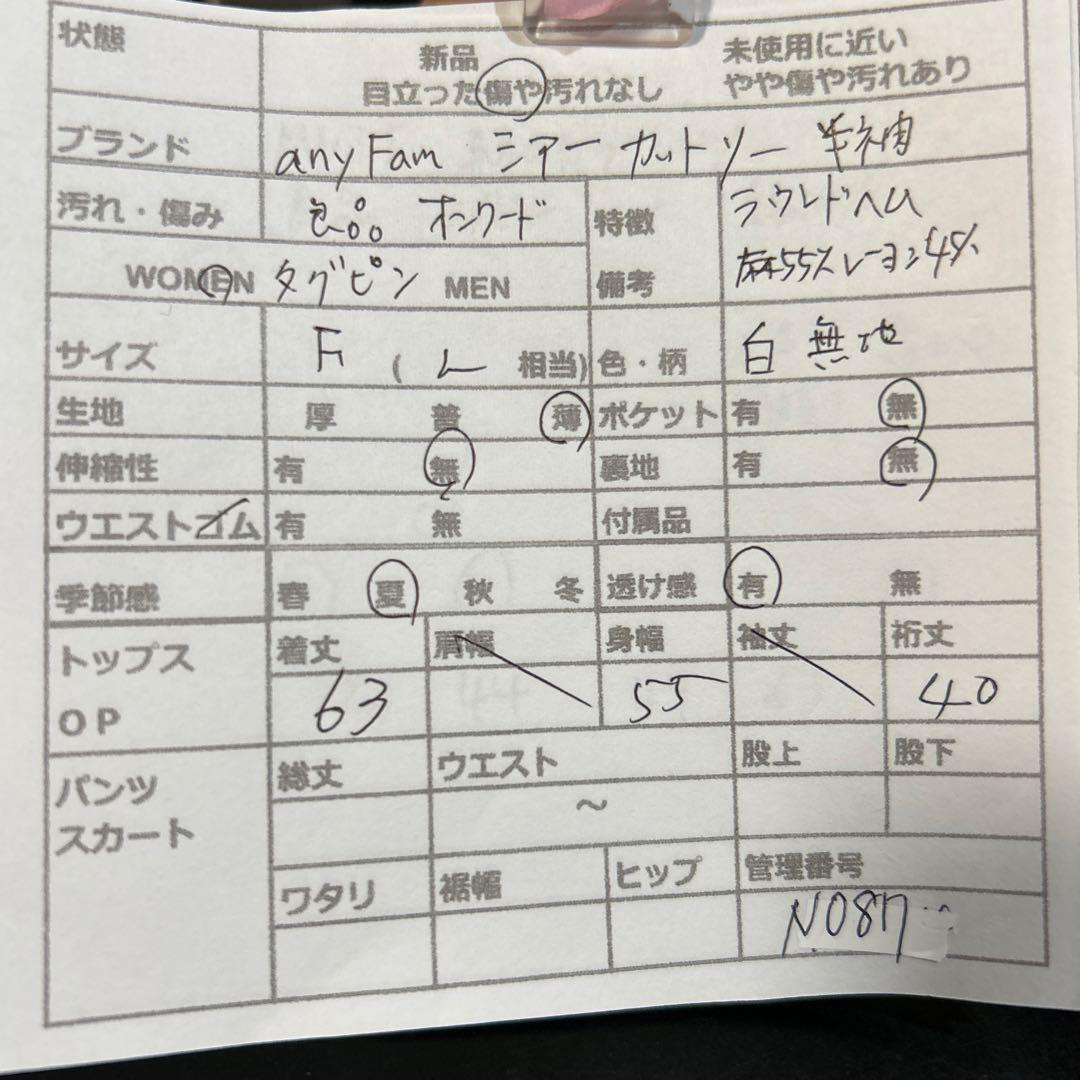 状態 新品 未使用に近い
目立った傷や汚れなし やや傷や汚れあり
ブランド anyFam シアー カットソー 半袖
汚れ・傷み 良品 オンワード 特徴 ラウンドヘム
WOMEN タグピン MEN 備考 麻55% レーヨン45%
サイズ F ( L 相当) 色・柄 白 無地
生地 厚 普 薄 ポケット 有 無
伸縮性 有 無 裏地 有 無
ウエストゴム 有 無 付属品
季節感 春 夏 秋 冬 透け感 有 無
トップス 着丈 肩幅 身幅 袖丈 裄丈
OP 63 55 40
パンツ 総丈 ウエスト 股上 股下
スカート ~
ワタリ 裾幅 ヒップ 管理番号
N087